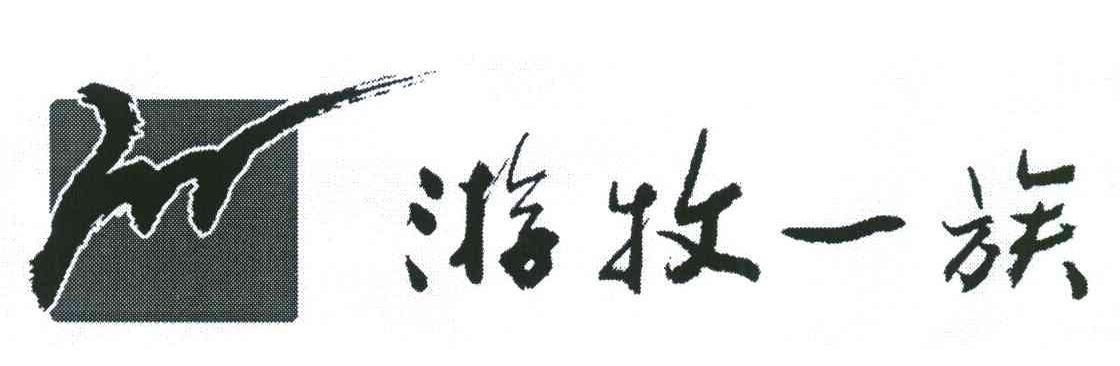 游牧一族